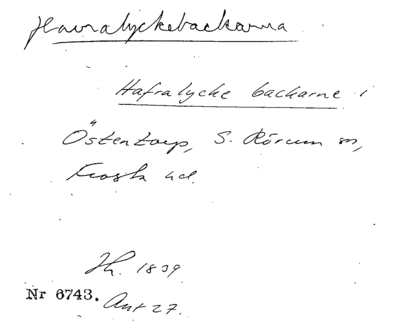 Havralyckebackarna
Hafralycke backarne i
Östentorp, S. Rörum sn,
Frosta hd.
Jh. 1839
Nr 6743. Ant 27.